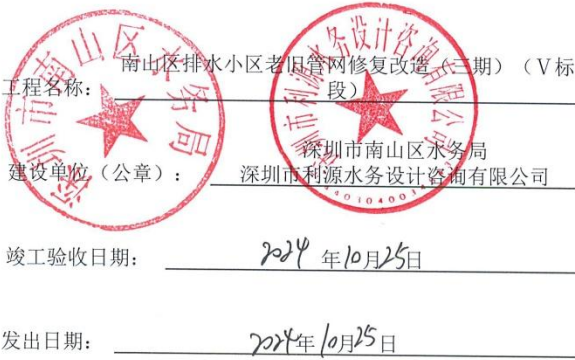 南山区排水小区老旧管网修复改造（三期）（V标
工程名称：
段）
深圳市南山区水务局
建设单位（公章）：
深圳市利源水务设计咨询有限公司
竣工验收日期：2024年10月25日
发出日期：2024年10月25日
深圳市南山区水务局
深圳市利源水务设计咨询有限公司